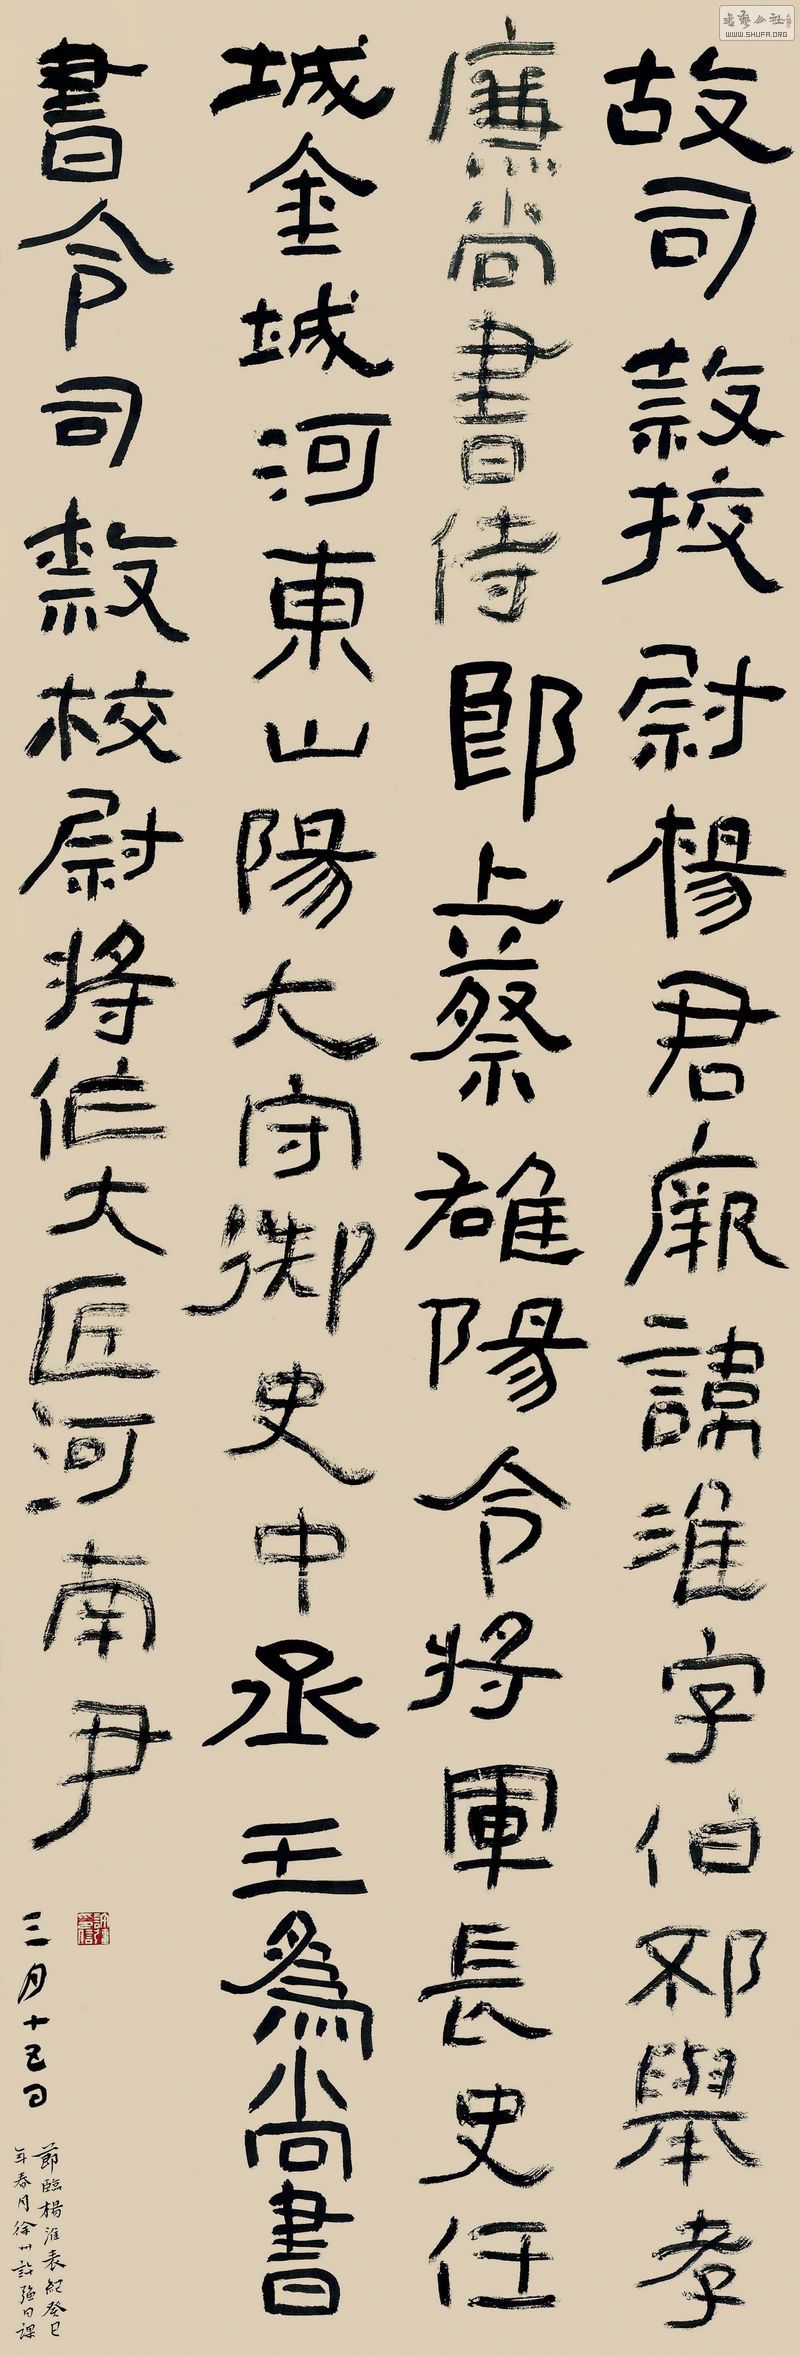 故司隸校尉楊君厥諱淮字伯邳舉孝
廉尚書侍郎上蔡雒陽令將軍長史任
城金城河東山陽大守御史中丞王爲尚書
書令司隸校尉將作大匠河南尹
三月十五日
節臨楊淮表紀癸巳
年春月徐州許強日課
WWW.SHUFA.ORG